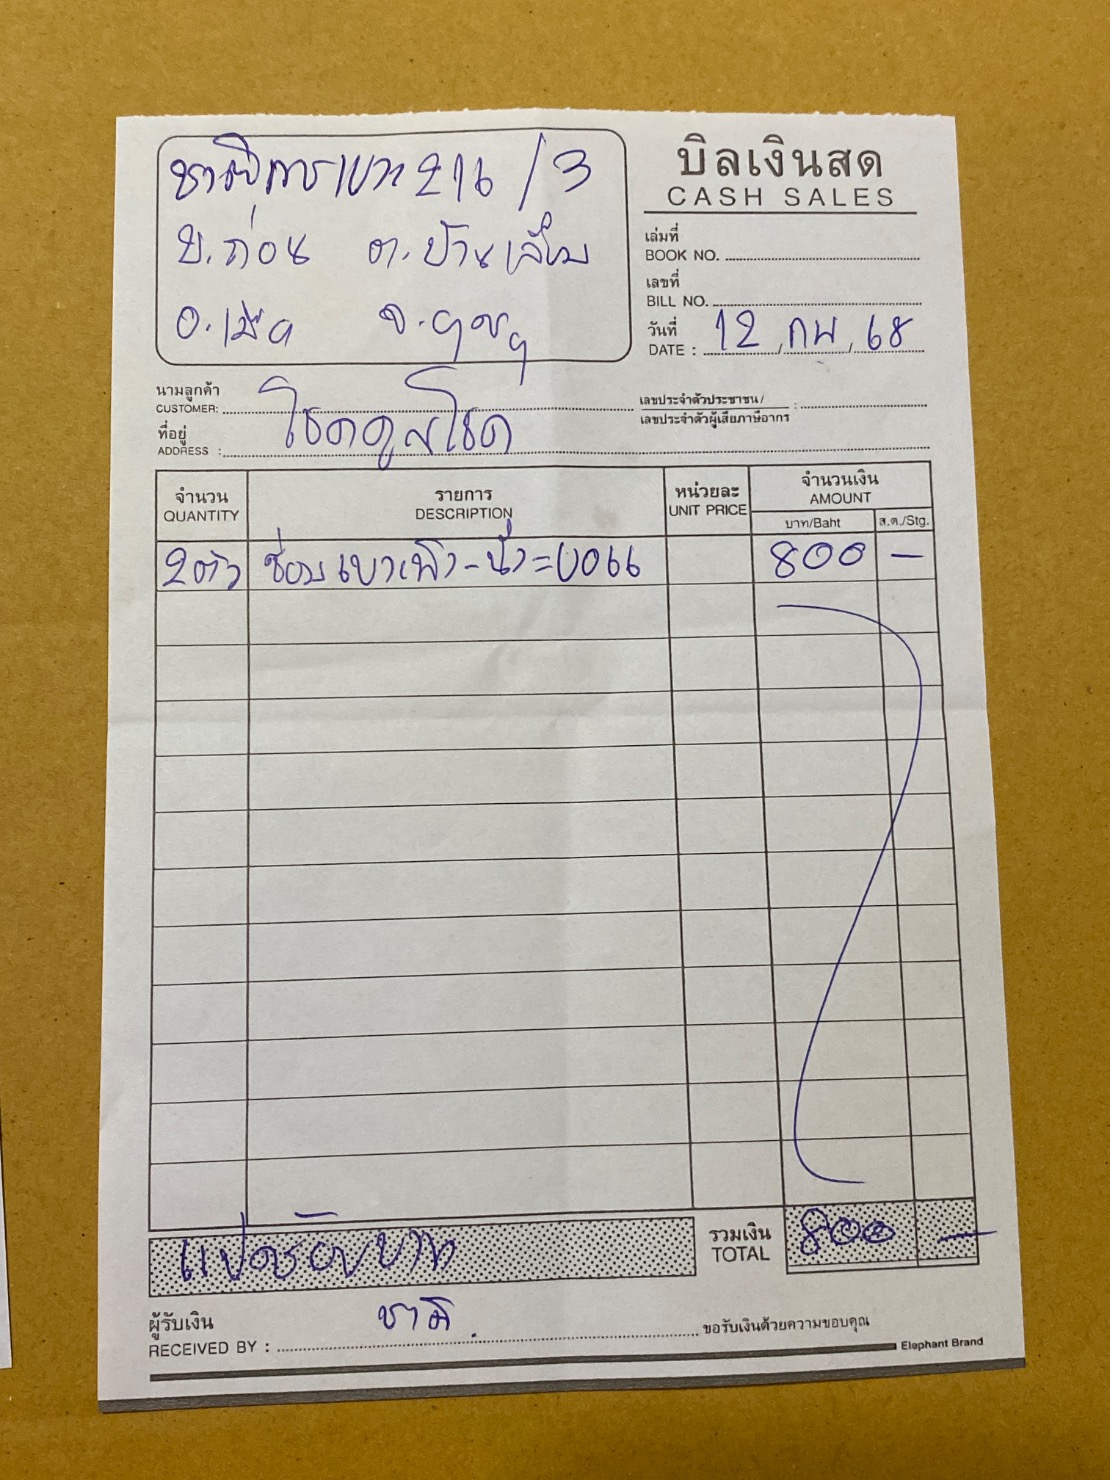 บิลเงินสด
CASH SALES
216/3
บ.ก่อน ต.บ้านเลื่อม
อ.เมือง จ.
เล่มที่
BOOK NO.
เลขที่
BILL NO.
วันที่
DATE : 12 / กพ / 68
นามลูกค้า
CUSTOMER:
เลขประจำตัวประชาชน/
เลขประจำตัวผู้เสียภาษีอากร :
โชคคูลโชค
ที่อยู่
ADDRESS :
จำนวน รายการ หน่วยละ จำนวนเงิน
QUANTITY DESCRIPTION UNIT PRICE AMOUNT
บาท/Baht ส.ต./Stg.
2 ตัว ซ่อมเบาะพิง-นั่ง = 800 —
แปดร้อยบาท
รวมเงิน
TOTAL 800 —
ผู้รับเงิน
RECEIVED BY : ชาติ ขอรับเงินด้วยความขอบคุณ
Elephant Brand